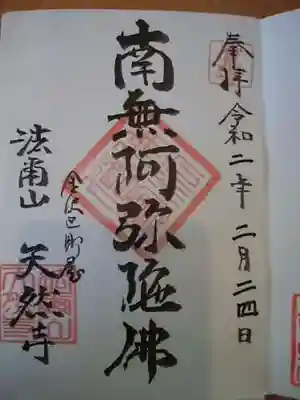 奉拝
令和二年二月二四日
南無阿弥陀佛
金沢区町屋
法爾山 天然寺